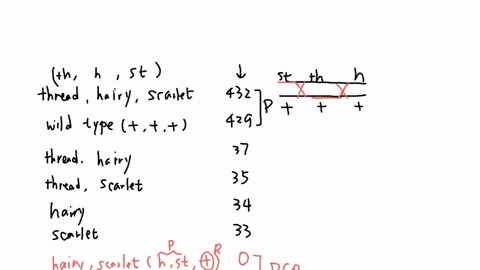 (th, h, st) ↓
thread, hairy, scarlet 432
wild type (+, +, +) 429
P
st th h
+ + +
thread. hairy 37
thread, scarlet 35
hairy 34
scarlet 33
P R
hairy, scarlet (h, st, +) 0